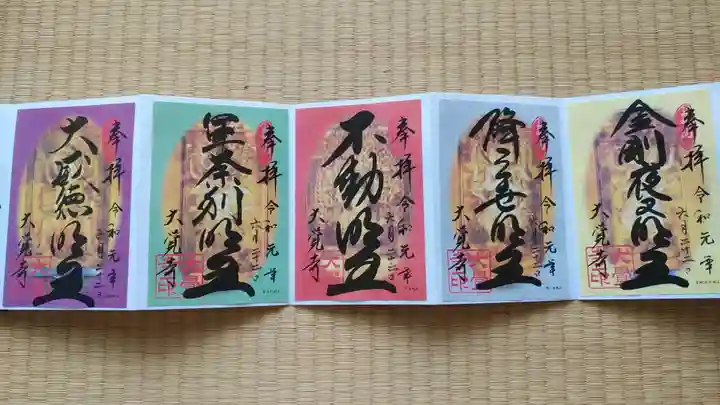 奉拝 令和元年
六月二十二日
金剛夜叉明王
大覚寺
奉拝 令和元年
六月二十二日
降三世明王
大覚寺
奉拝 令和元年
六月二十二日
不動明王
大覚寺
奉拝 令和元年
六月二十二日
軍荼利明王
大覚寺
奉拝 令和元年
六月二十二日
大威徳明王
大覚寺